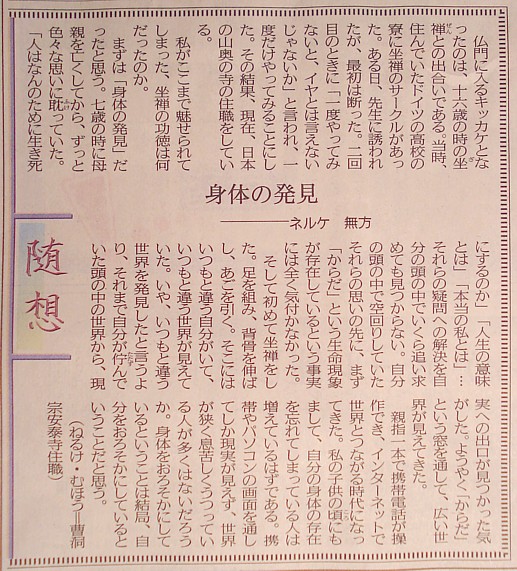 身体の発見
ネルケ 無方
随想
仏門に入るキッカケとな
ったのは、十六歳の時の坐
禅との出合いである。当時、
住んでいたドイツの高校の
寮に坐禅のサークルがあっ
た。ある日、先生に誘われ
たが、最初は断った。二回
目のときに「一度やってみ
ないと、イヤとは言えない
じゃないか」と言われ、一
度だけやってみることにし
た。その結果、現在、日本
の山奥の寺の住職をしてい
る。
私がここまで魅せられて
しまった、坐禅の功徳は何
だったのか。
まずは「身体の発見」だ
ったと思う。七歳の時に母
親を亡くしてから、ずっと
色々な思いに耽っていた。
「人はなんのために生き死
にするのか」「人生の意味
とは」「本当の私とは」…
それらの疑問への解決を自
分の頭の中でいくら追い求
めても見つからない。自分
の頭の中で空回りしていた
それらの思いの先に、まず
「からだ」という生命現象
が存在しているという事実
には全く気付かなかった。
そして初めて坐禅をし
た。足を組み、背骨を伸ば
し、あごを引く。そこには
いつもと違う自分がいて、
いつもと違う世界が見えて
いた。いや、いつもと違う
世界を発見したと言うよ
り、それまで自分が佇んで
いた頭の中の世界から、現
実への出口が見つかった気
がした。ようやく「からだ」
という窓を通して、広い世
界が見えてきた。
親指一本で携帯電話が操
作でき、インターネットで
世界とつながる時代になっ
てきた。私の子供の頃にも
まして、自分の身体の存在
を忘れてしまっている人は
増えているはずである。携
帯やパソコンの画面を通し
てしか現実が見えず、世界
が狭く息苦しくうつってい
る人が多くはないだろう
か。身体をおろそかにして
いるということは結局、自
分をおろそかにしていると
いうことだと思う。
（ねるけ・むほう―曹洞
宗安泰寺住職）